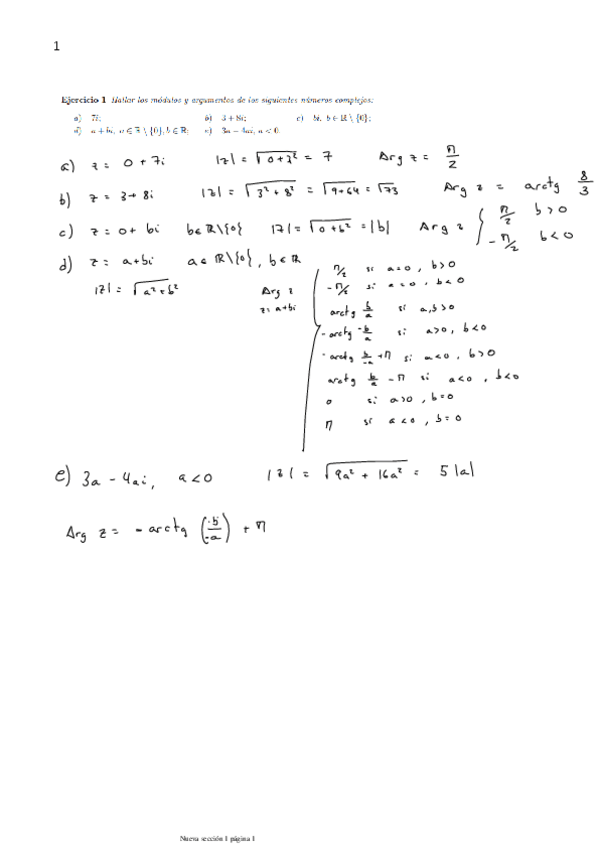 1
Ejercicio 1 Hallar los módulos y argumentos de los siguientes números complejos:
a) 7i; b) 3 + 8i; c) bi, b ∈ ℝ \ {0};
d) a + bi, a ∈ ℝ \ {0}, b ∈ ℝ; e) 3a − 4ai, a < 0.
a) z = 0 + 7i |z| = √(0+7²) = 7 Arg z = π/2
b) z = 3 + 8i |z| = √(3² + 8²) = √(9+64) = √73 Arg z = arctg 8/3
c) z = 0 + bi b ∈ ℝ\{0} |z| = √(0 + b²) = |b| Arg z { π/2 b > 0
− π/2 b < 0
d) z = a + bi a ∈ ℝ\{0}, b ∈ ℝ
|z| = √(a² + b²)
Arg z
z = a+bi
π/2 si a = 0, b > 0
− π/2 si a = 0, b < 0
arctg b/a si a, b > 0
− arctg −b/a si a > 0, b < 0
− arctg b/−a + π si a < 0, b > 0
arctg b/a − π si a < 0, b < 0
0 si a > 0, b = 0
π si a < 0, b = 0
e) 3a − 4ai, a < 0 |z| = √(9a² + 16a²) = 5 |a|
Arg z = − arctg (−b/−a) + π
Nueva sección 1 página 1